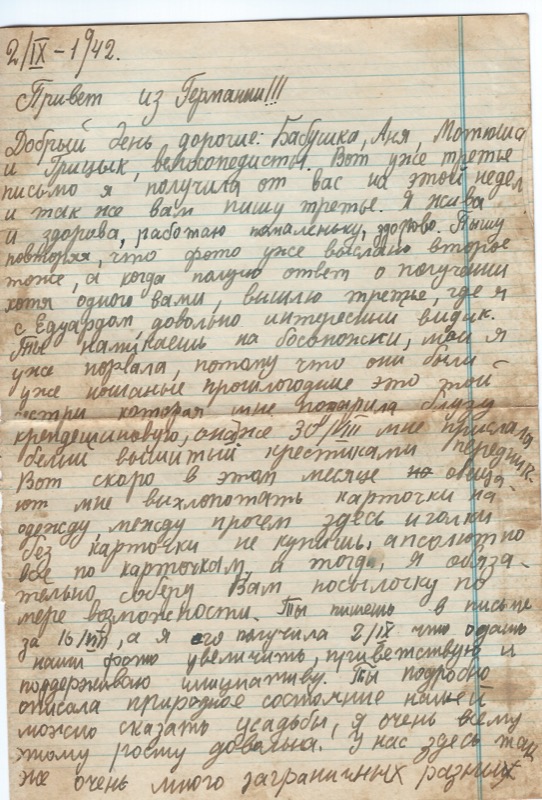 2/IX-1942.
Привет из Германии!!!
Добрый день дорогие: Бабушка, Аня, Мотюша
и Грицык, велосопедисты. Вот уже третье
письмо я получила от вас на этой недел
и так же вам пишу третье. Я жива
и здорова, работаю помаленьку, здорово. Пышу
повторяя, что фото уже выслано второе
тоже, а когда получу ответ о получании
хотя одного вами, вышлю третье, где я
с Едуардом, довольно интересний видик.
Ты намикаешь на босоножки, мои я
уже порвала, потому что они были
уже ношаные прошлогодние это той
сестри которая мне подарила блузу
крепдешиновую, она же 30/VIII мне прислала
белий вышитый крестиками передник.
Вот скоро в этом месяце обеща-
ют мне выхлопотать карточки на
одежду между прочем здесь и голки
без карточки не купишь, апсолютно
все по карточкам, а тогда, я обяза-
тельно соберу Вам посылочку по
мере возможности. Ты пишешь в письме
за 16/VIII, а я его получила 2/IX что одаш
наши фото увеличить, приветствую и
поддерживаю инициативу. Ты подробно
описала природное состояние нашей
можно сказать усадьбы, я очень всему
этому росту довольна. У нас здесь так
же очень много заграничных разних